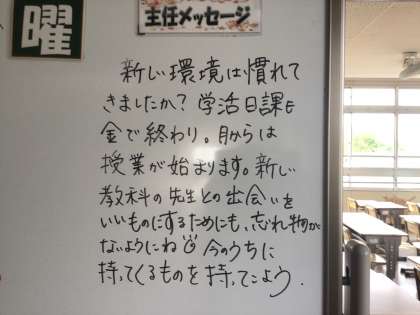 曜
主任メッセージ
新しい環境は慣れて
きましたか?学活日課も
金で終わり。月からは
授業が始まります。新しい
教科の先生との出会いを
いいものにするためにも、忘れ物が
ないようにね 今のうちに
持ってくるものを持ってこよう.